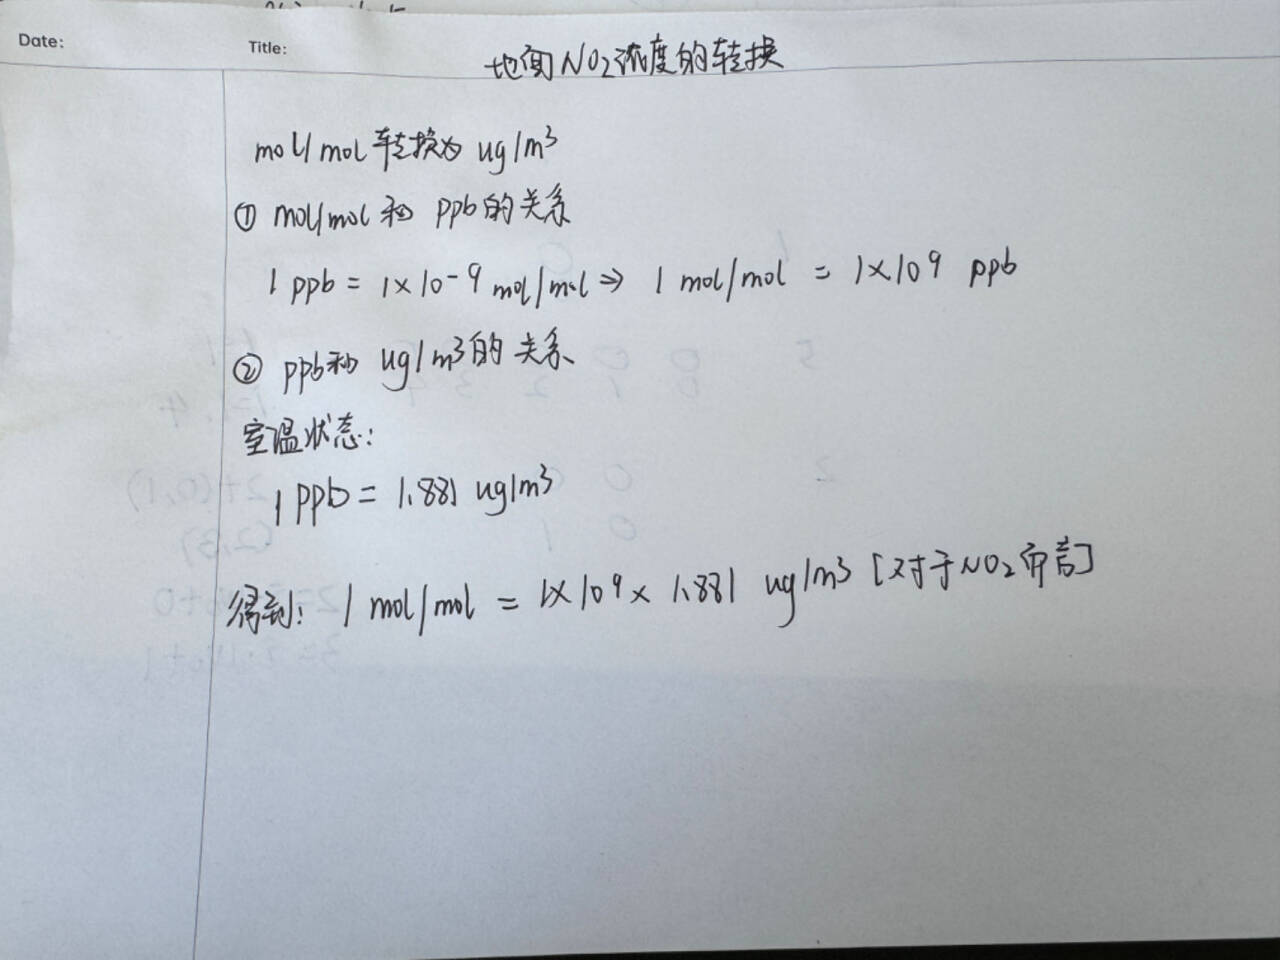 Date:
Title:
地面NO2浓度的转换
mol/mol转换为 ug/m3
① mol/mol 和 ppb的关系
1 ppb = 1×10-9 mol/mol ⇒ 1 mol/mol = 1×109 ppb
② ppb和 ug/m3的关系
室温状态:
1 ppb = 1.881 ug/m3
得到: 1 mol/mol = 1×109 × 1.881 ug/m3 [对于NO2而言]